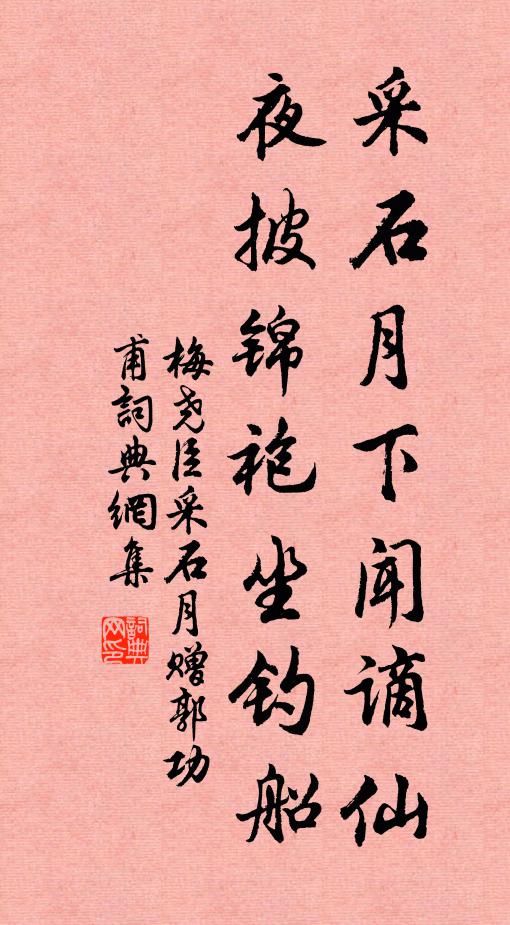 采石月下闻谪仙
夜披锦袍坐钓船
梅尧臣采石月赠郭功
甫詞典網集
詞典
网印